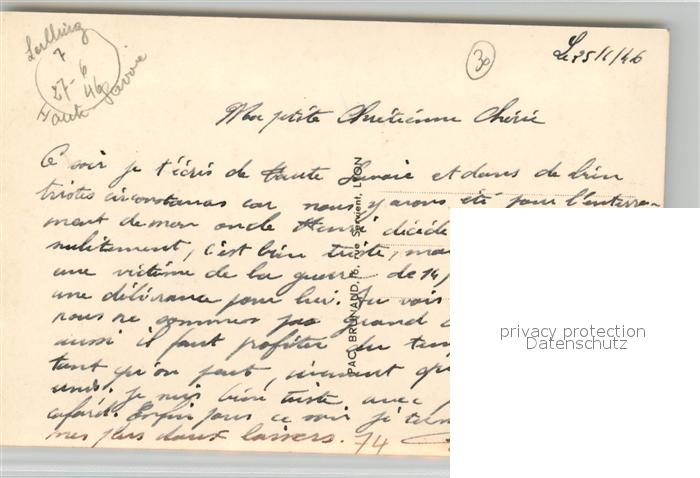 7
27-6
46
Haute Savoie
30
Le 25/6/46
Ma ptite Chrétienne Chérie
Ce soir je t'écris de Haute Savoie et dans de bien
tristes circonstances car nous y avons été pour l'enterre-
ment de mon oncle Henri décédé
subitement, c'est bien triste, mais
une victime de la guerre de 14/
une délivrance pour lui. Tu vois
nous ne sommes pas grand
aussi il faut profiter du temps
tant qu'on peut, vivement
unis, je suis bien triste avec
cafard. Enfin pour ce soir je
mes plus doux baisers. 74
PAC, BRUNAND, 76, rue Servient, LYON
privacy protection
Datenschutz